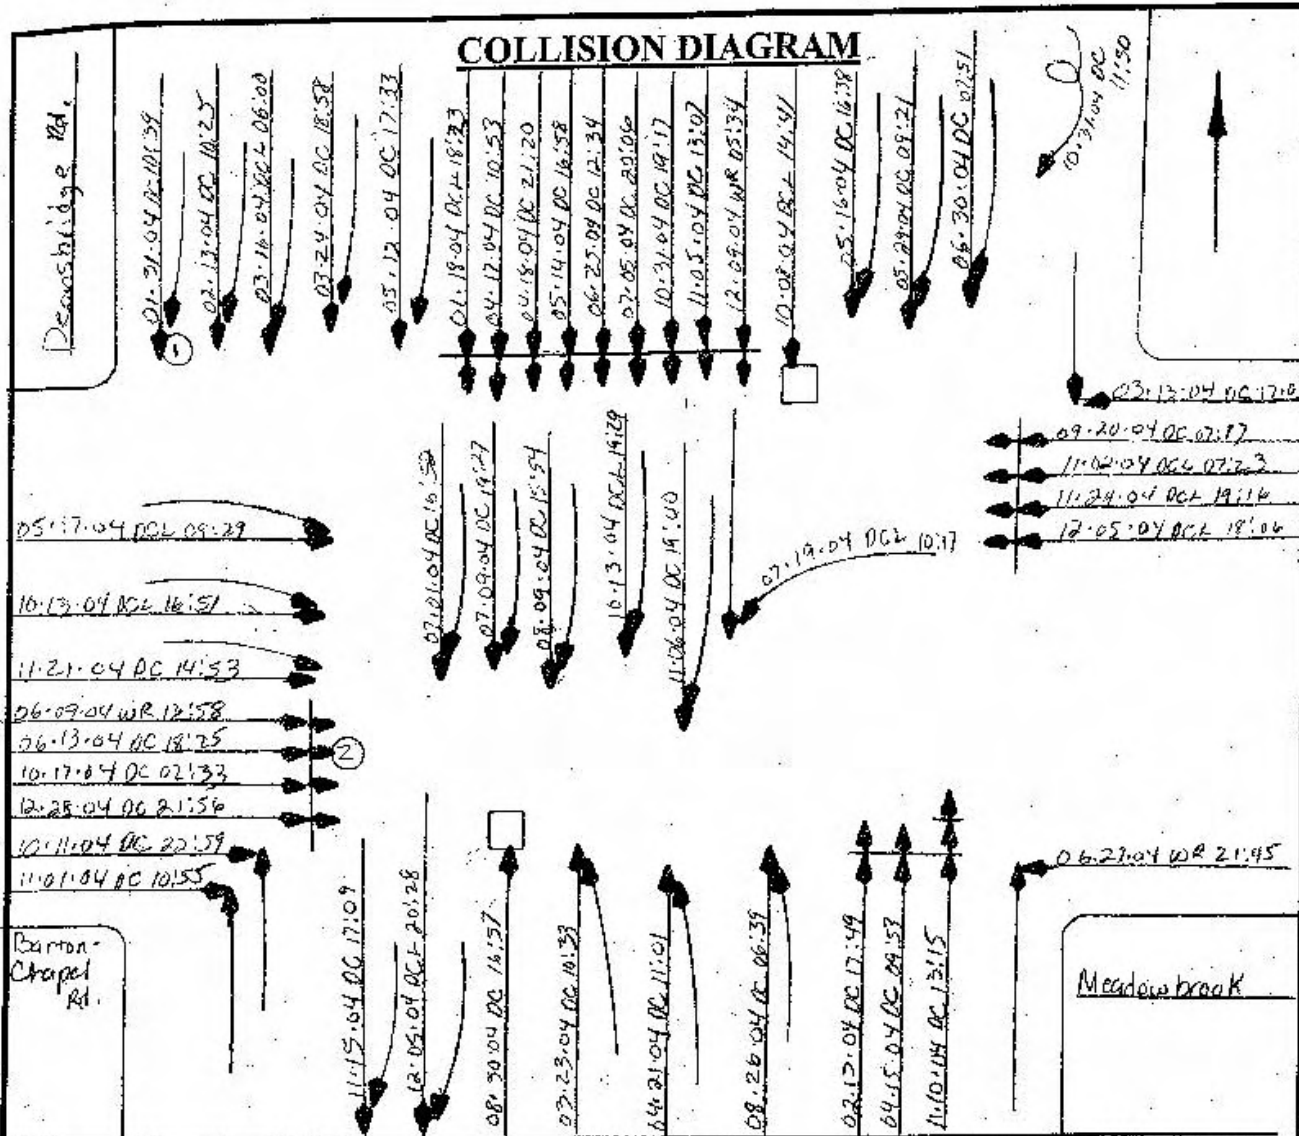 COLLISION DIAGRAM
Deansbridge Rd.
01.31.04 DC 10:39
02.13.04 DC 10:25
03.16.04 DCL 06:00
03.24.04 DC 18:58
05.12.04 DC 17:33
01.18.04 DCL 18:23
04.17.04 DC 10:53
04.18.04 DC 21:20
05.14.04 DC 16:58
06.25.04 DC 12:34
07.05.04 DC
10.31.04 DC 19:17
11.05.04 DC 13:07
12.09.04 WR 05:34
10.08.04 DCL 14:41
05.16.04 DC 16:38
05.29.04 DC 09:21
06.30.04 DC 07:51
10.31.04 DC
11:50
1
03.13.04 DC
09.20.04 DC 07:17
11.02.04 DCL 07:23
11.29.04 DCL 19:16
12.05.04 DCL 18:06
07.01.04 DC 16:52
07.09.04 DC 19:27
08.09.04 DC 15:54
10.13.04 DCL 19:29
11.06.04 DC 19:00
07.19.04 DCL 10:17
05.17.04 DCL 09:29
10.13.04 DCL 16:51
11.21.04 DC 14:53
06.09.04 WR 13:58
06.13.04 DC 18:25
10.17.04 DC 02:33
12.28.04 DC 21:56
2
10.11.04 DC 20:59
11.01.04 DC 10:55
06.27.04 WR 21:45
Barton-
Chapel
Rd.
11.15.04 DC 17:09
12.05.04 DCL 20:28
08.30.04 DC 16:57
03.23.04 DC 10:33
04.21.04 DC 11:01
08.26.04 DC 06:39
02.13.04 DC 17:49
04.15.04 DC 09:53
11.10.04 DC 13:15
Meadowbrook